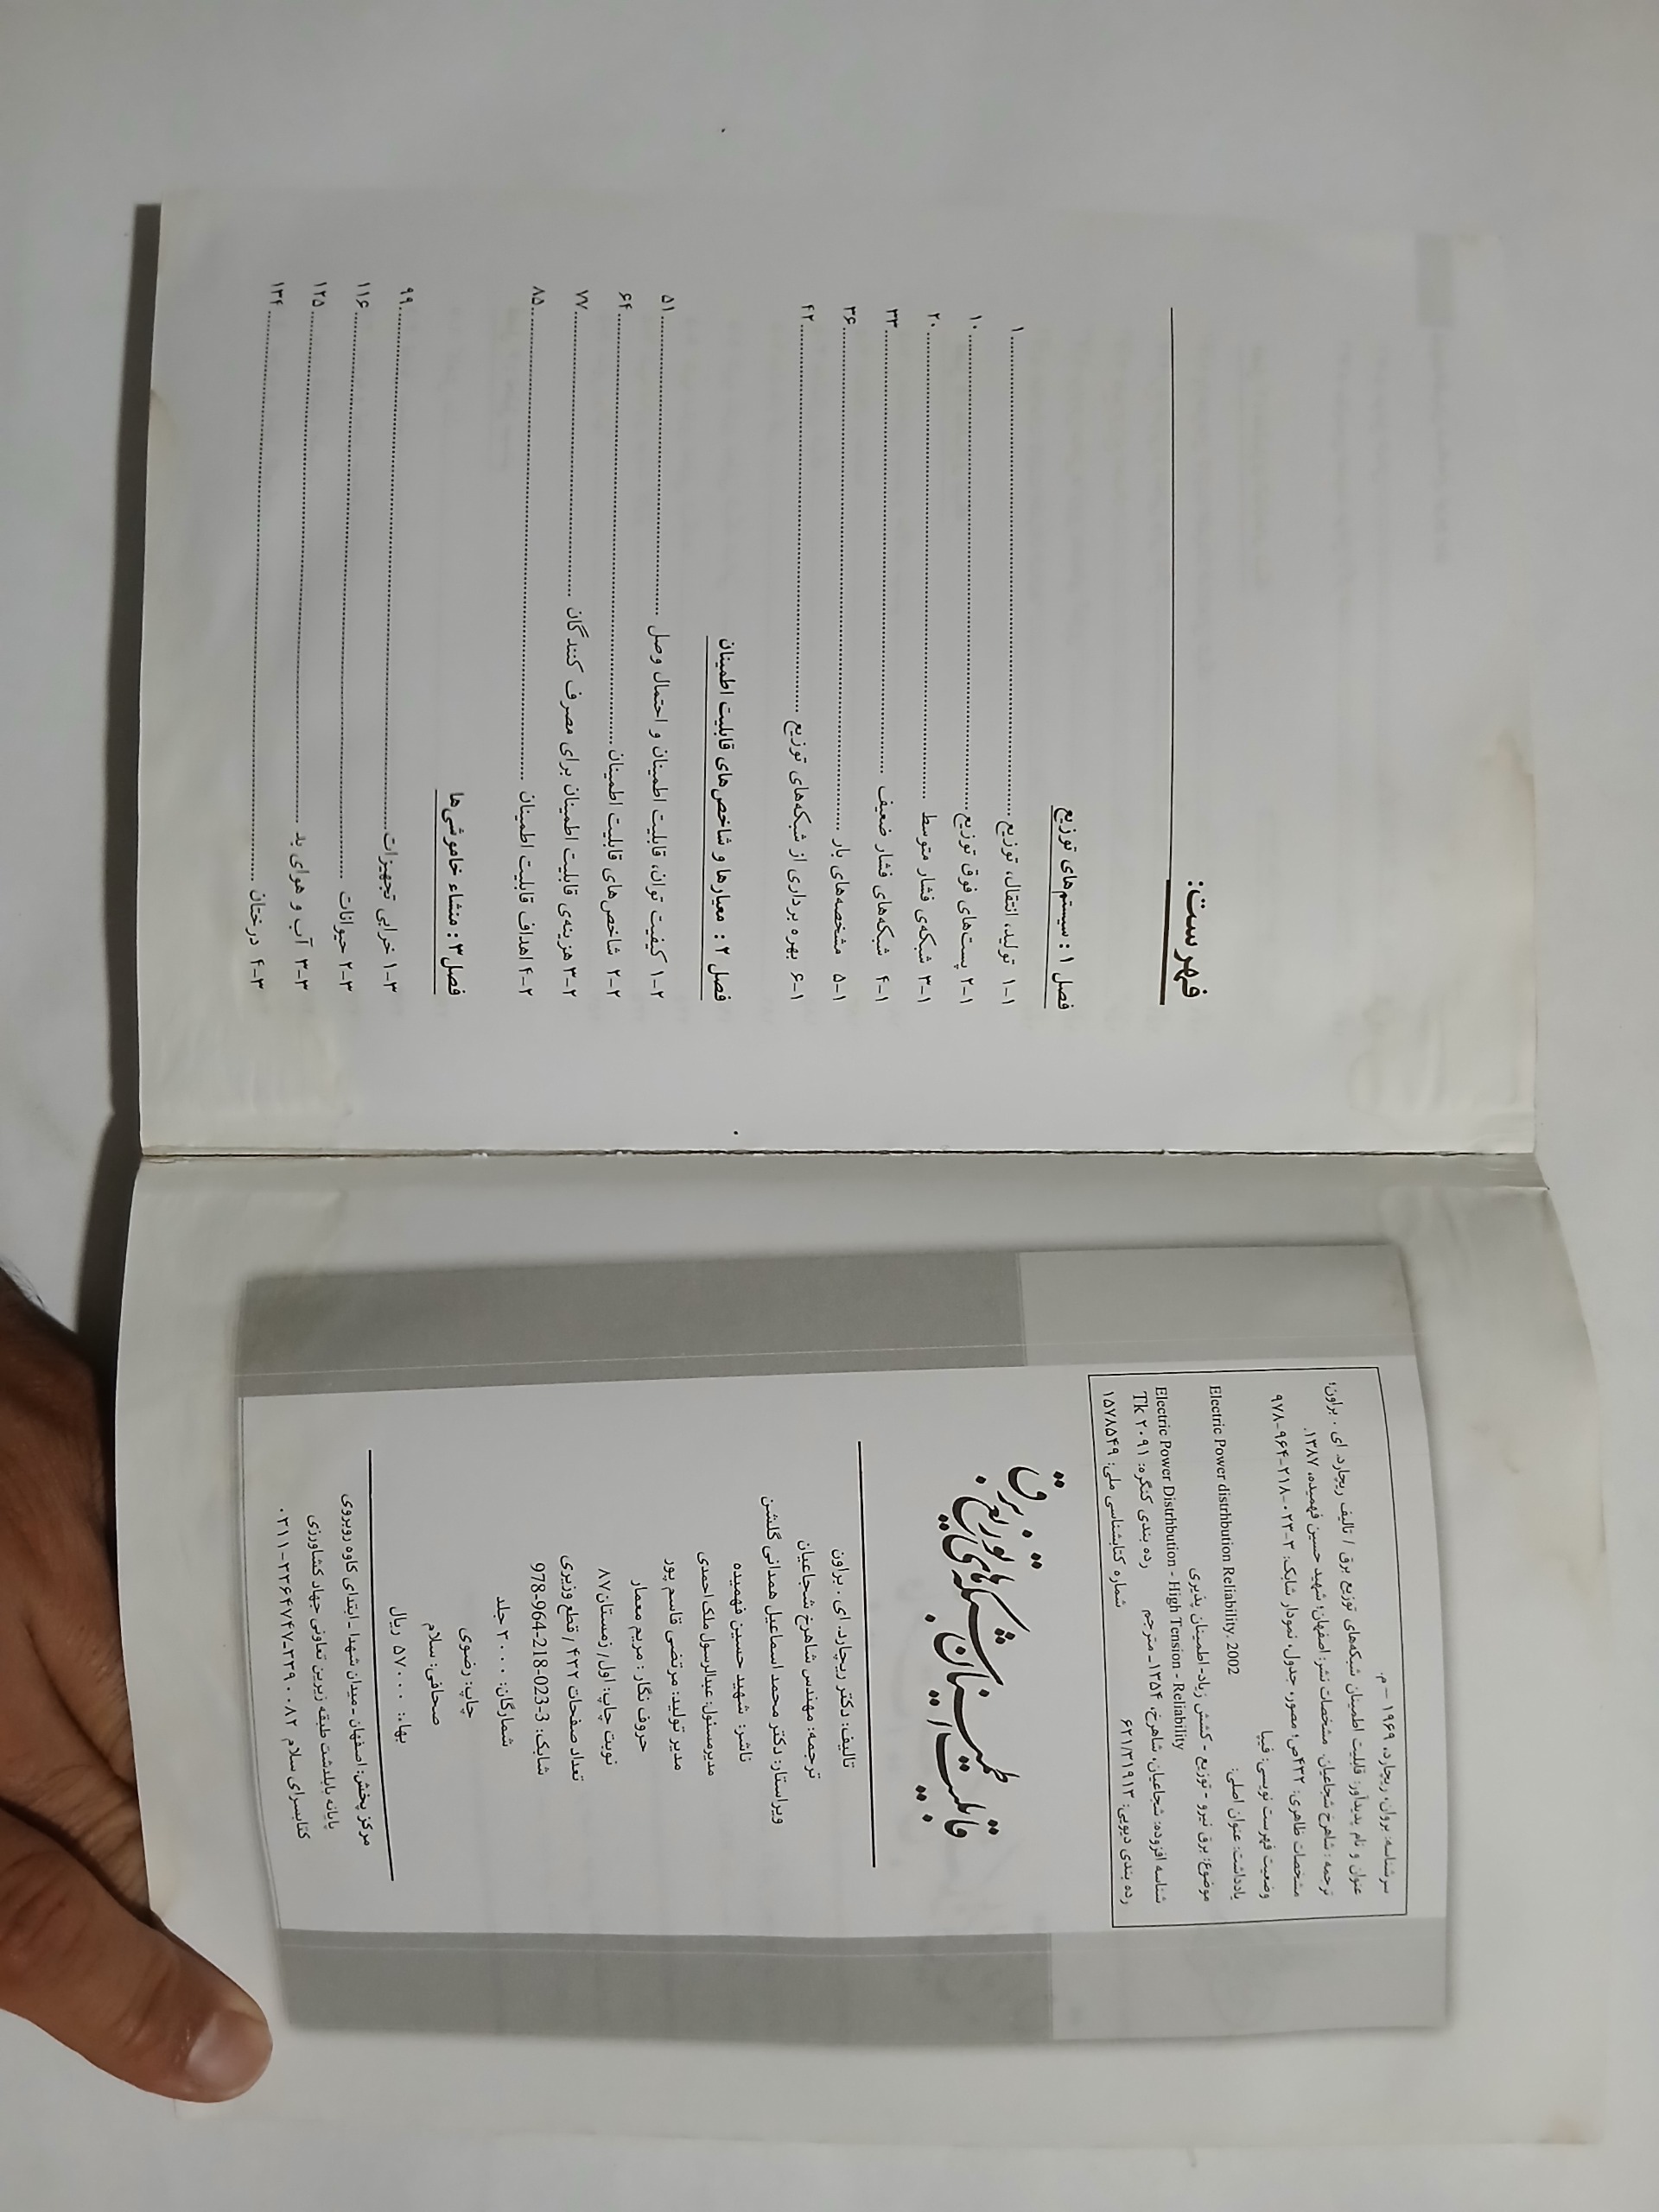 سرشناسه: براون، ریچارد، ۱۹۶۹ – م.
عنوان و نام پدیدآور: قابلیت اطمینان شبکه‌های توزیع برق / تالیف ریچارد. ای . براون؛
ترجمه : شاهرخ شجاعیان. مشخصات نشر: اصفهان؛ شهید حسین فهمیده، ۱۳۸۷.
مشخصات ظاهری: ۴۳۲ص؛ مصور، جدول، نمودار شابک: ۳-۰۲۳-۲۱۸-۹۶۴-۹۷۸
وضعیت فهرست نویسی: فیپا
یادداشت: عنوان اصلی: Electric Power distrhbution Reliability. 2002
موضوع: برق نیرو - توزیع - کشش زیاد- اطمینان پذیری
Electric Power Distrhbution - High Tension - Reliability
شناسه افزوده: شجاعیان، شاهرخ، ۱۳۵۴ـ مترجم رده بندی کنگره: Tk ۲۰۹۱
رده بندی دیویی: ۶۲۱/۳۱۹۱۳ شماره کتابشناسی ملی: ۱۵۷۸۵۴۹
قابلیت اطمینان شبکه‌های توزیع برق
تالیف: دکتر ریچارد. ای . براون
ترجمه: مهندس شاهرخ شجاعیان
ویراستار: دکتر محمد اسماعیل همدانی گلشن
ناشر: شهید حسین فهمیده
مدیرمسئول: عبدالرسول ملک احمدی
مدیر تولید: مرتضی قاسم پور
حروف نگار : مریم معمار
نوبت چاپ: اول/ زمستان۸۷
تعداد صفحات ۴۳۲ / قطع وزیری
شابک: 978-964-218-023-3
شمارگان: ۲۰۰۰ جلد
چاپ: رضوی
صحافی: سلام
بهاء: ۵۷۰۰۰ ریال
مرکز پخش: اصفهان - میدان شهدا - ابتدای کاوه روبروی
پایانه بابلدشت طبقه زیرین تعاونی جهاد کشاورزی
کتابسرای سلام ۳۳۹۰۰۸۲-۳۳۶۴۷۴۷-۰۳۱۱
فهرست:
فصل ۱ : سیستم‌های توزیع
۱-۱ تولید، انتقال، توزیع ........ ۱
۱-۲ پست‌های فوق توزیع ........ ۱۰
۱-۳ شبکه‌ی فشار متوسط ........ ۲۰
۱-۴ شبکه‌های فشار ضعیف ........ ۳۳
۱-۵ مشخصه‌های بار ........ ۳۶
۱-۶ بهره برداری از شبکه‌های توزیع ........ ۴۲
فصل ۲ : معیارها و شاخص‌های قابلیت اطمینان
۲-۱ کیفیت توان، قابلیت اطمینان و احتمال وصل ........ ۵۱
۲-۲ شاخص‌های قابلیت اطمینان ........ ۶۴
۲-۳ هزینه‌ی قابلیت اطمینان برای مصرف کنندگان ........ ۷۷
۲-۴ اهداف قابلیت اطمینان ........ ۸۵
فصل ۳ : منشاء خاموشی‌ها
۳-۱ خرابی تجهیزات ........ ۹۹
۳-۲ حیوانات ........ ۱۱۶
۳-۳ آب و هوای بد ........ ۱۲۵
۳-۴ درختان ........ ۱۳۴